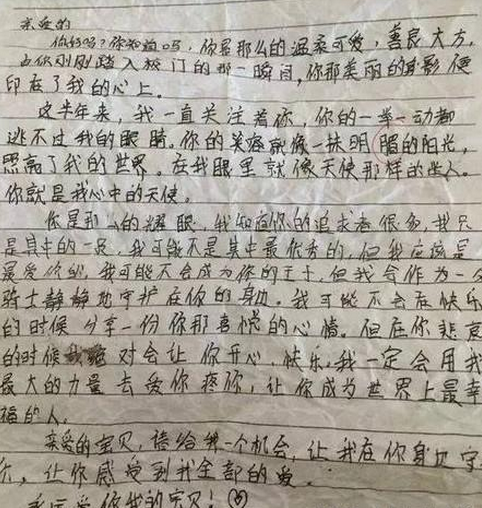 亲爱的
你好吗？你知道吗，你是那么的温柔可爱，善良大方，
当你刚刚踏入校门的那一瞬间，你那美丽的身影便
印在了我的心上。
这半年来，我一直关注着你，你的一举一动都
逃不过我的眼睛。你的笑容就像一抹明媚的阳光，
照亮了我的世界。在我眼里就像天使那样的坐人。
你就是我心中的天使。
你是那么的耀眼，我知道你的追求者很多，我只
是其中的一员，我可能不是其中最优秀的，但我应该是
最爱你的，我可能不会成为你的王子，但我会作为一
骑士静静地守护在你的身边。我可能不会在快乐
的时候分享一份你那喜悦的心情。但在你悲哀
的时候我绝对会让你开心，快乐。我一定会用我
最大的力量去爱你疼你，让你成为世界上最幸
福的人。
亲爱的宝贝，请给我一个机会，让我在你身边守
你，让你感受到我全部的爱。
永远爱你我的宝贝！